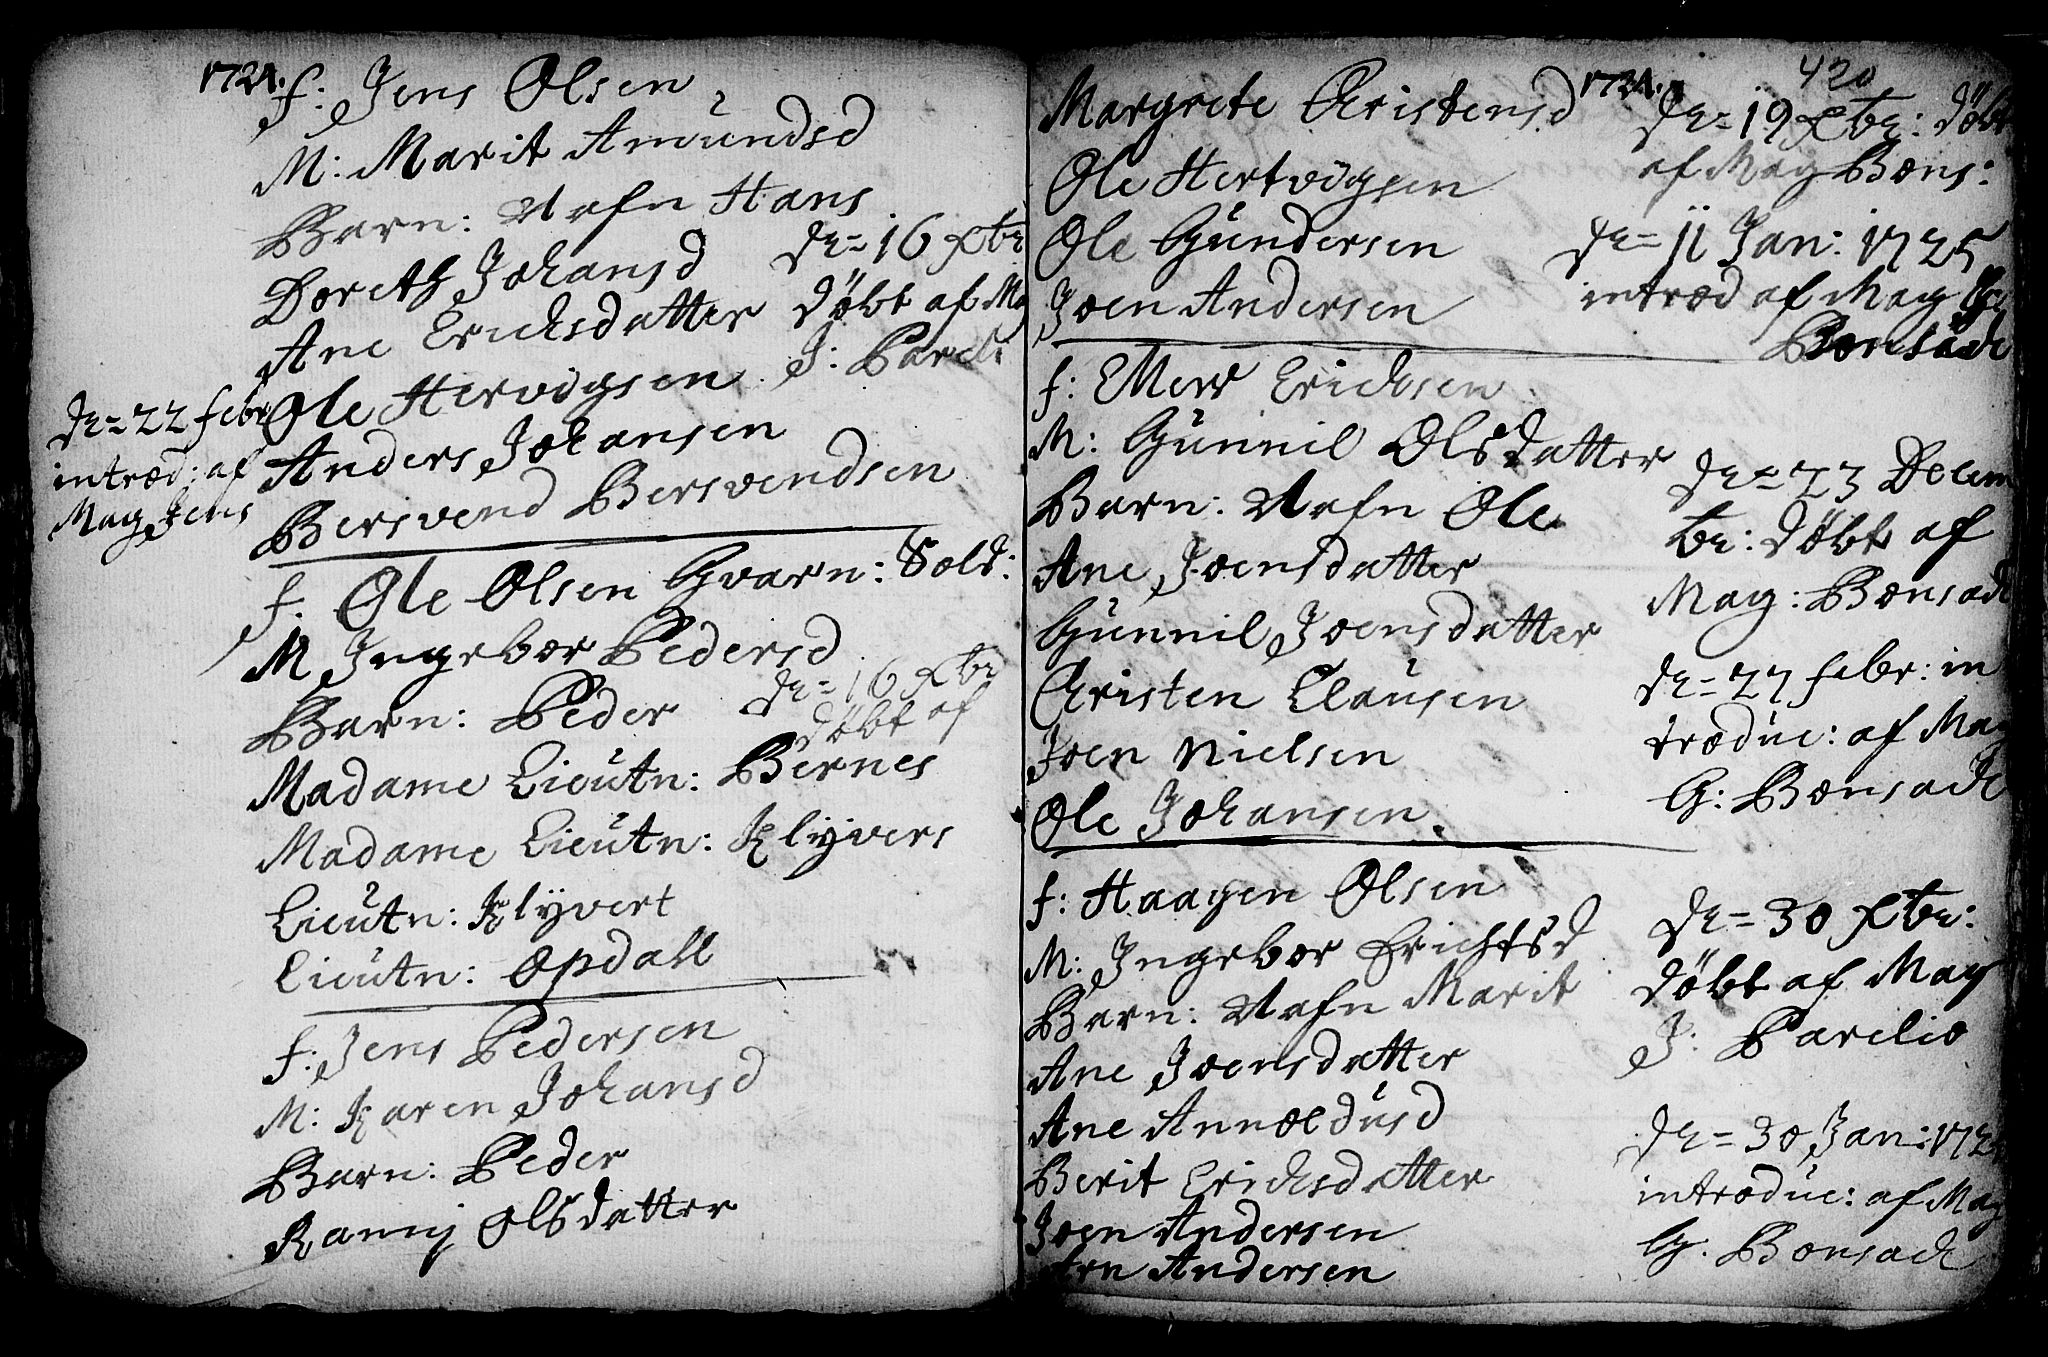 1724.
f: Jens Olsen
M: Marit Amundsd
Barn: Nafn Hans
Doreth Johansd
Ane Ericksdatter
Ole Hervigsen
Anders Johansen
Bersvend Bersvendsen
d= 16 Xbr
døbt af Mag
J: Pareli
d= 22 febr
introd: af
Mag Jens
f: Ole Olsen Gvarn: Sold:
M Ingebor Pedersd
Barn: Peder
d= 16 Xbr
døbt af
Madame Lieutn: Bernes
Madame Lieutn: Klyvers
Lieutn: Klyvert
Lieutn: Opdall
f: Jens Pedersen
M: Karen Johansd
Barn: Peder
Ranny Olsdatter
1724.
420
Margrete Christensd
Ole Hertvigsen
Ole Gundersen
Joen Andersen
d= 19 Xbr: døbt
af Mag Bons:
d= 11 Jan: 1725
introd af Mag
Bonsach
f: Ellev Ericksen
M: Gunnil Olsdatter
Barn: Nafn Ole
Ane Joensdatter
Gunnil Joensdatter
Christen Clausen
Joen Nielsen
Ole Johansen.
d= 23 Decem
br: døbt af
Mag: Bonsach
d= 27 febr: in
troduc: af Mag
G: Bonsach
f: Haagen Olsen
M: Ingebor Erichsd
Barn: Nafn Marit
Ane Joensdatter
Ane Annoldusd
Berit Ericksdatter
Joen Andersen
Arn Andersen
d= 30 Xbr:
døbt af Mag
J: Parelio
d= 30 Jan: 172
introduc: af Mag
G. Bonsach